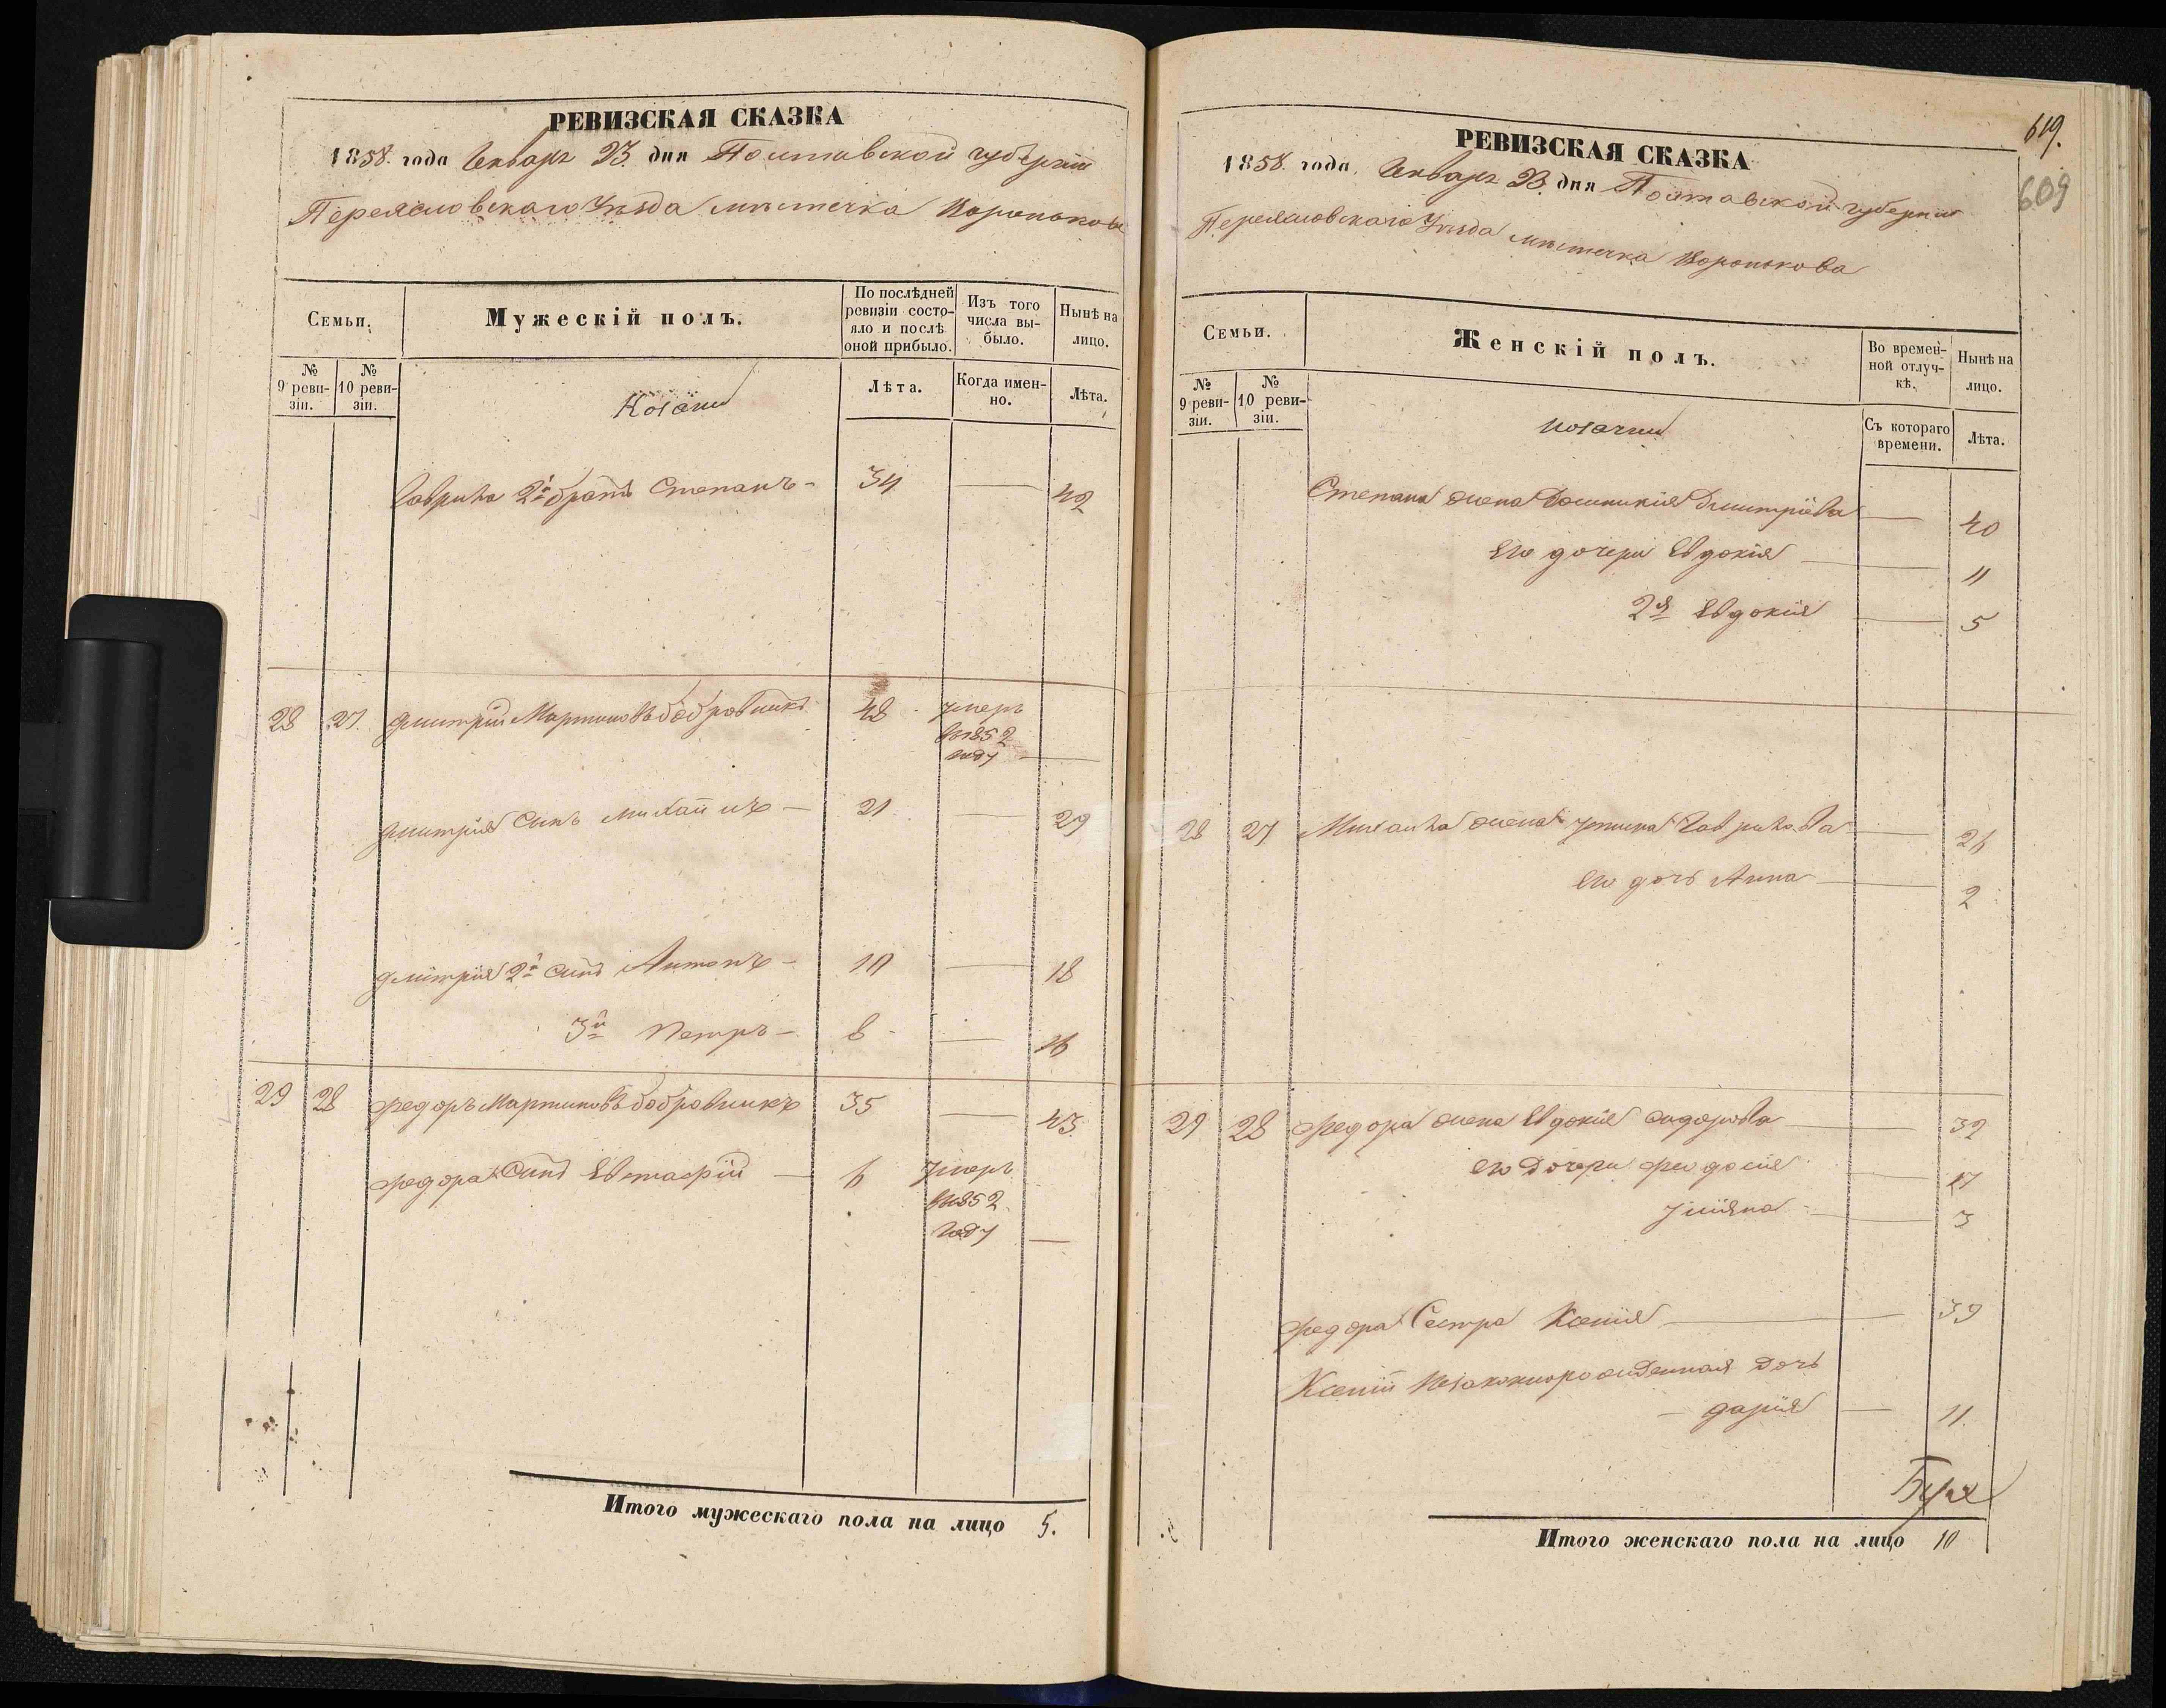 РЕВИЗСКАЯ СКАЗКА
1858. года Генваря 23. дня Полтавской губернии
Переясловскаго Уѣзда мѣстечка Воронькова
Семьи.
Мужескій полъ.
По послѣдней ревизіи состояло и послѣ оной прибыло.
Изъ того числа выбыло.
Нынѣ на лицо.
№ 9 ревизіи.
№ 10 ревизіи.
Козаки
Лѣта.
Когда именно.
Лѣта.
Гаврила 2й братъ Степанъ - 34 — 42
28 27. Дмитрій Мартиновъ Бобровникъ 48 умеръ
въ 1852
году —
Дмитрія Синъ Михаилъ — 21 — 29
Дмитрія 2й Синъ Антонъ - 10 — 18
3й Петръ - 8 — 16
29 28 Федоръ Мартиновъ Бобровникъ 35 — 43
Федора Синъ Евстафій — 6 Умеръ
въ 1852
году —
Итого мужескаго пола на лицо 5.
619.
609
РЕВИЗСКАЯ СКАЗКА
1858. года. Генваря 23. дня Полтавской губернии
Переясловскаго Уѣзда мѣстечка Воронькова
Семьи.
Женскій полъ.
Во временной отлучкѣ.
Нынѣ на лицо.
№ 9 ревизіи.
№ 10 ревизіи.
Козачки
Съ котораго времени.
Лѣта.
Степана жена Домникія Дмитріева — 40
Его дочери Евдокія — 11
2я Евдокія — 5
28 27 Михаила жена Устина Гаврилова — 26
Его дочь Анна — 2
29 28 Федора жена Евдокія Сидорова — 32
Его Дочери Феодосія — 17
Уліяна — 3
Федора Сестра Ксенія — 39
Ксеніи Незаконнорожденная Дочь
— Дарія — 11.
Итого женскаго пола на лицо 10